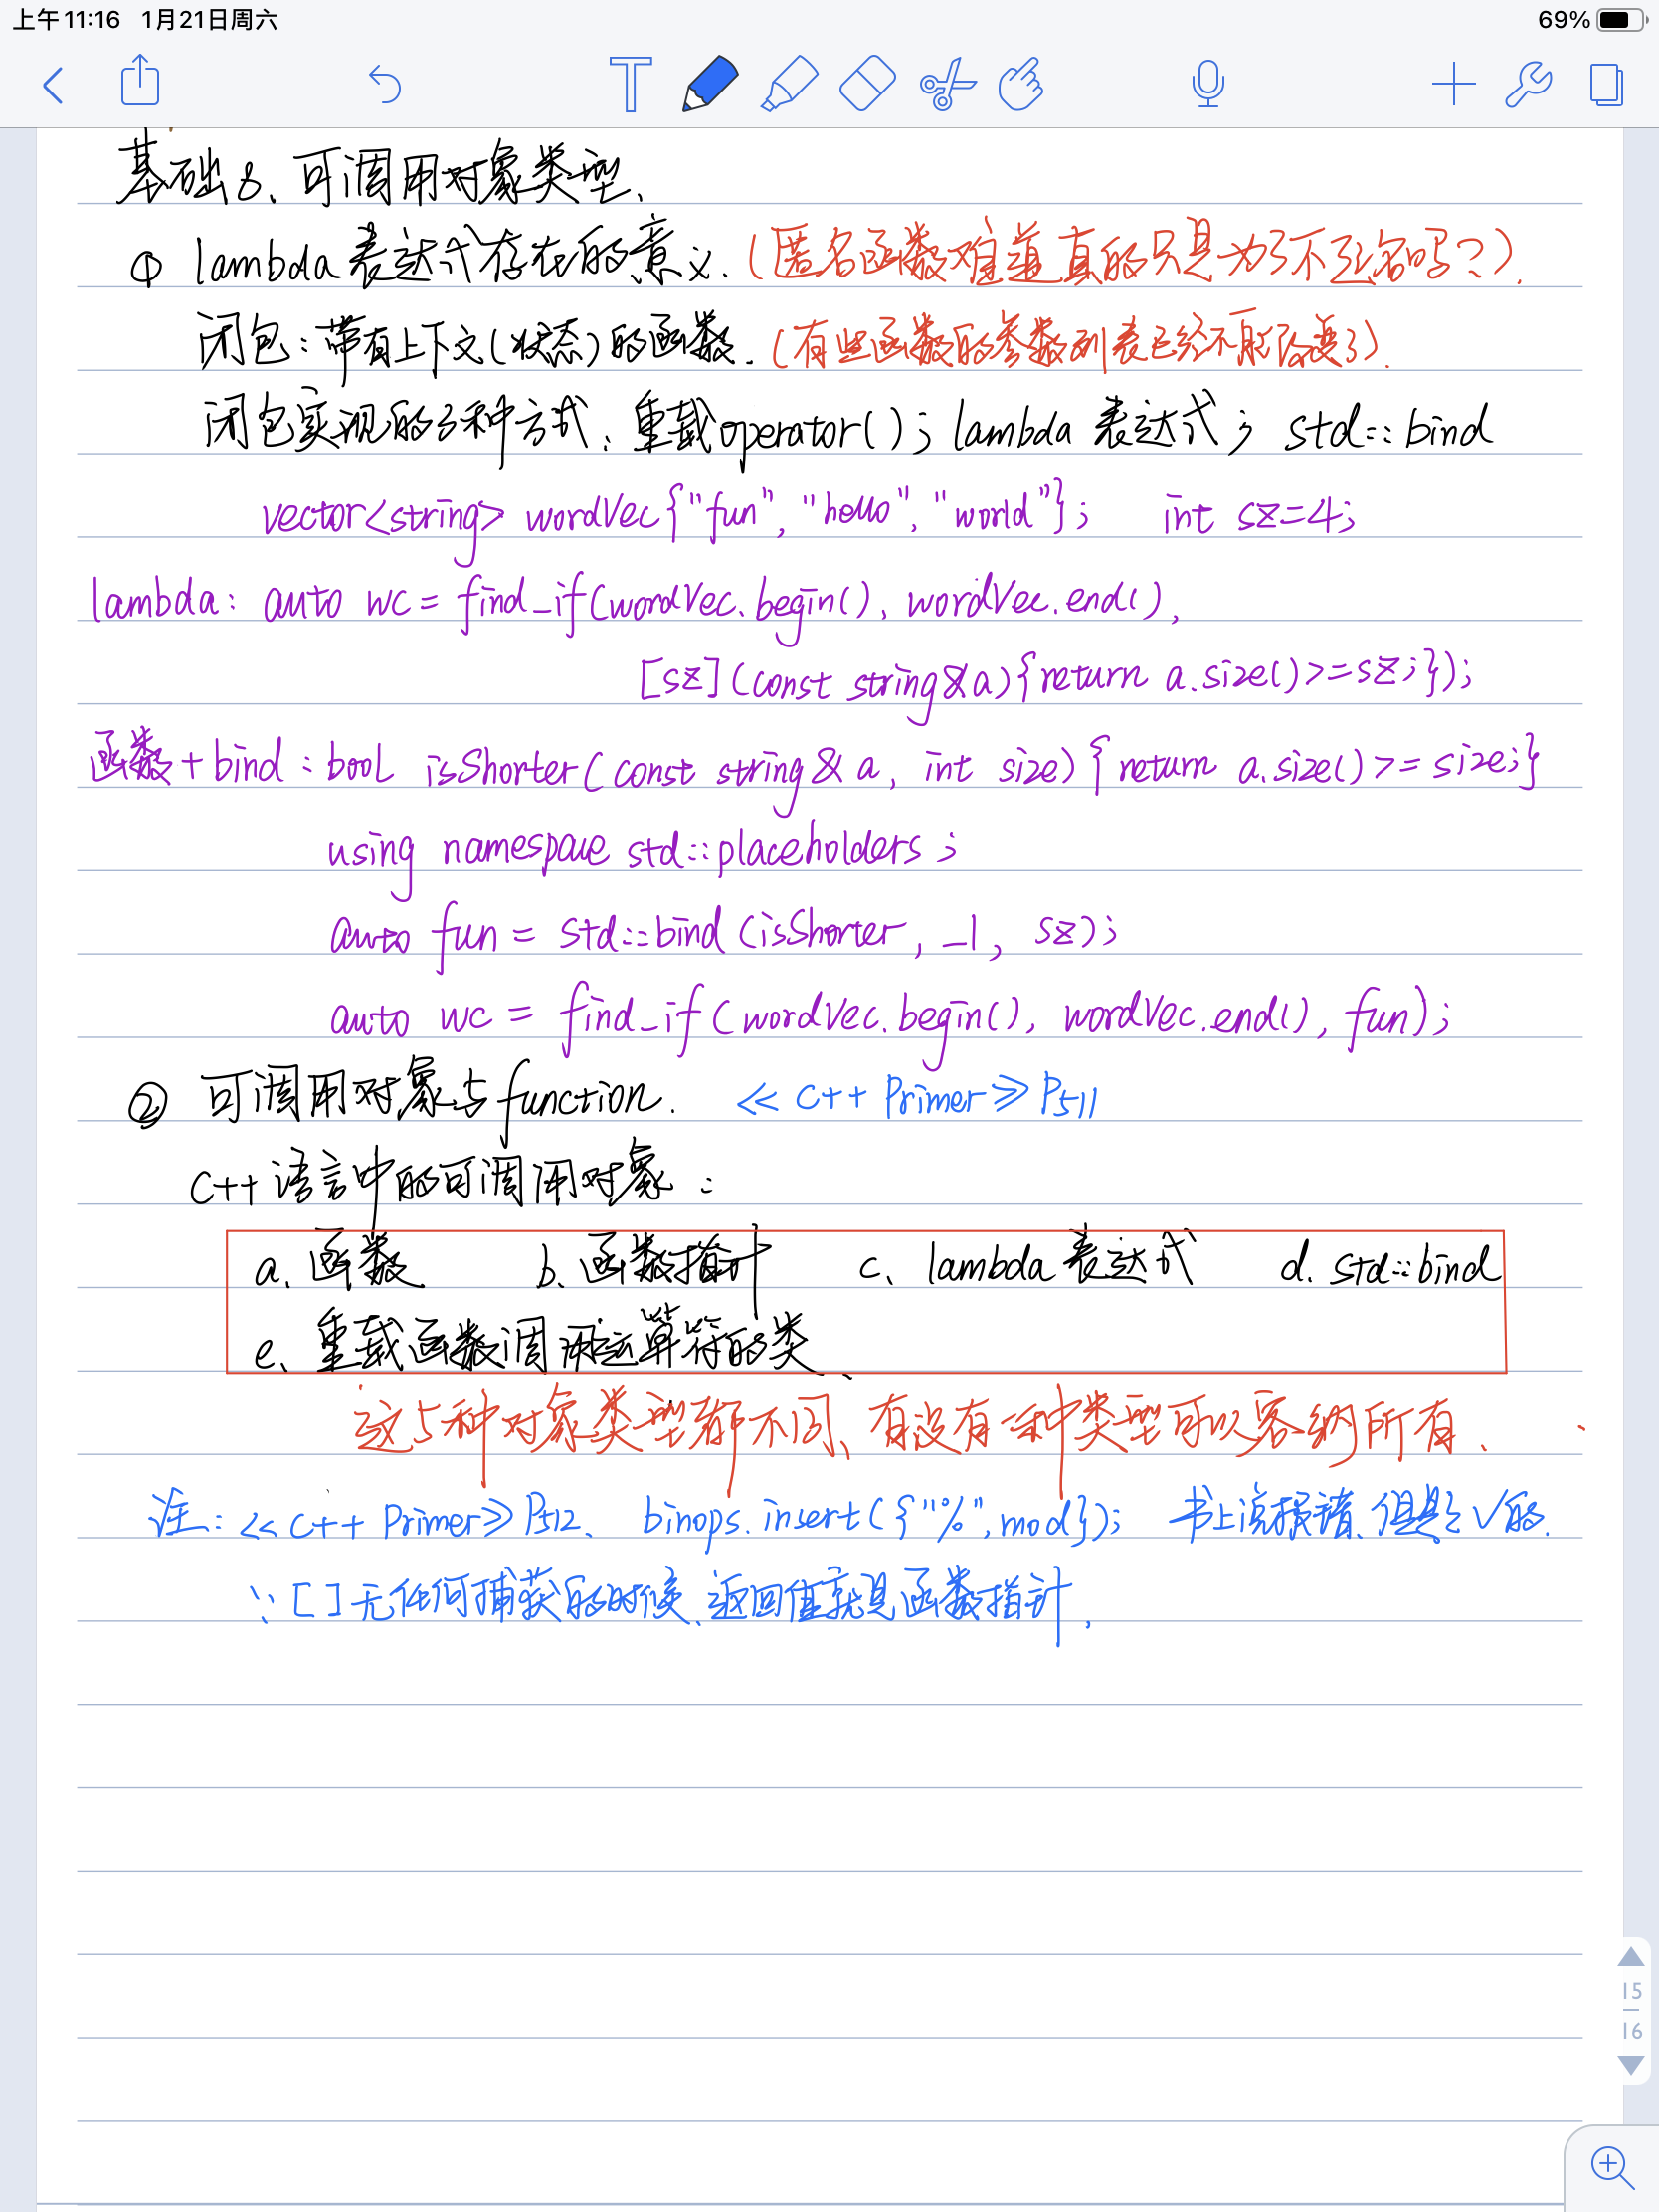 上午11:16 1月21日周六 69%
T
基础8、可调用对象类型、
① lambda表达式存在的意义.(匿名函数难道真的只是为了不起名吗?).
闭包:带有上下文(状态)的函数.(有些函数的参数列表已经不能改变了).
闭包实现的3种方式、重载operator();lambda 表达式; std::bind
vector<string> wordVec{"fun", "hello", "world"}; int sz=4;
lambda: auto wc = find_if(wordVec.begin(), wordVec.end(),
[sz](const string&a){return a.size()>=sz;});
函数+bind:bool isShorter(const string & a, int size){return a.size()>=size;}
using namespace std::placeholders;
auto fun = std::bind(isShorter, _1, sz);
auto wc = find_if(wordVec.begin(), wordVec.end(), fun);
② 可调用对象与function. <<C++ Primer>> P511
C++语言中的可调用对象:
a、函数 b、函数指针 c、lambda表达式 d. std::bind
e、重载函数调用运算符的类、
这5种对象类型都不同、有没有一种类型可以容纳所有.
注:<<C++ Primer>> P512、 binops.insert({"%",mod}); 书上说报错、但是✓的.
∵[]无任何捕获的时候、返回值就是函数指针.
15
16